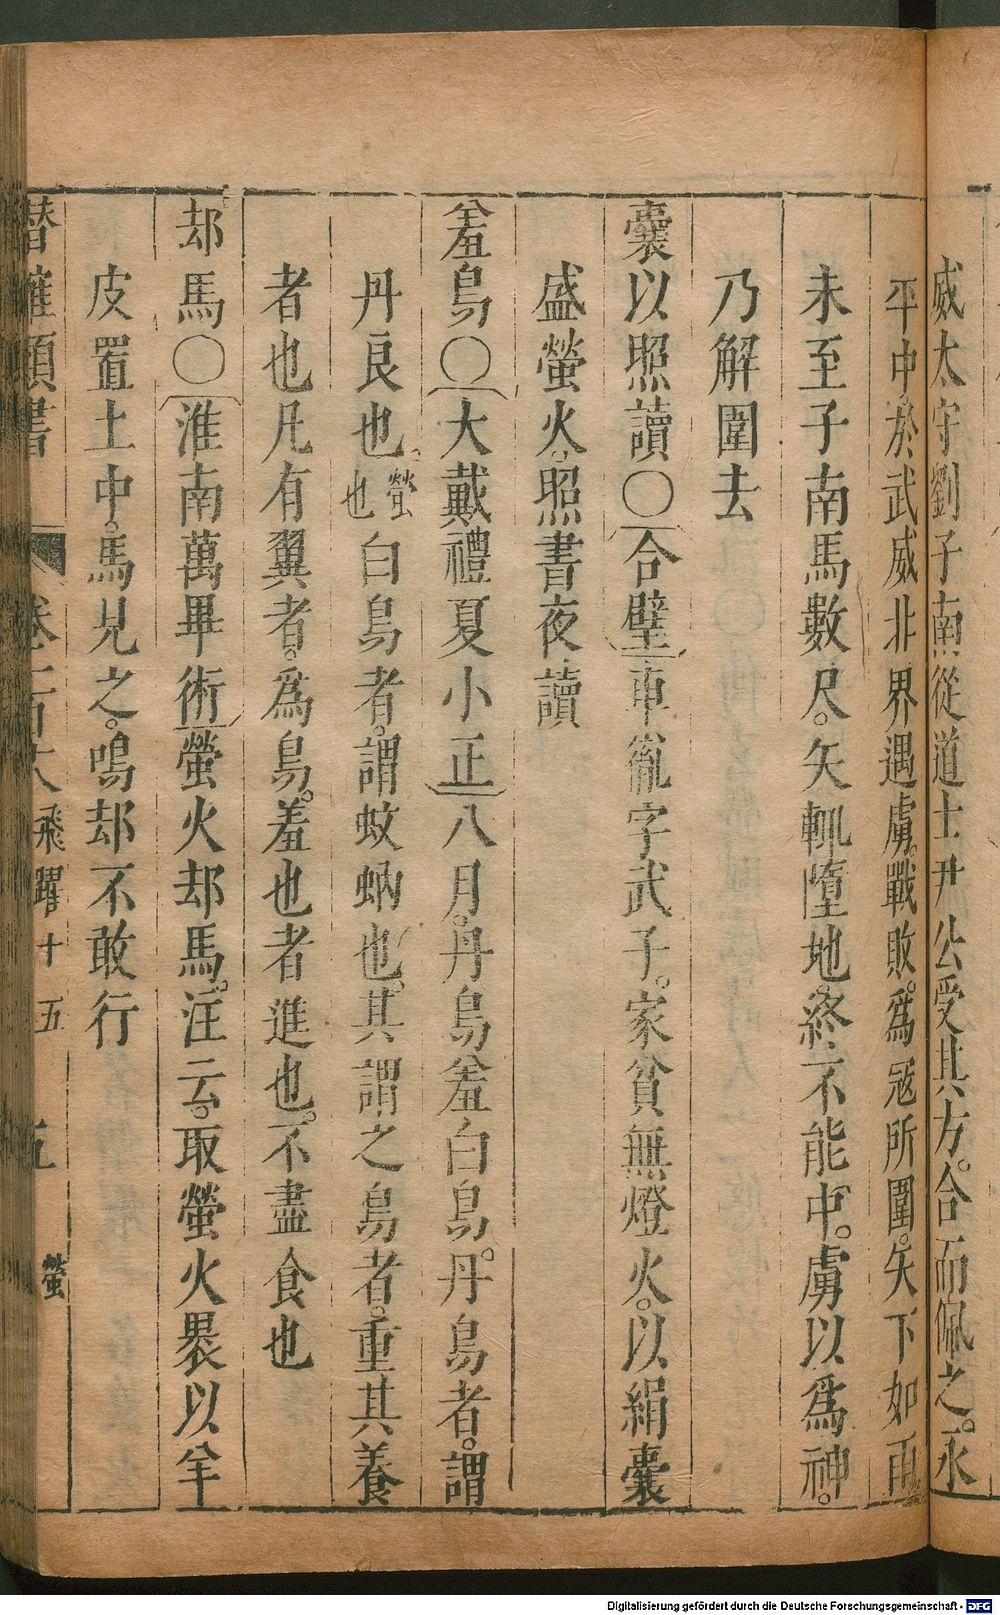 威太守劉子南從道士尹公受其方。合而佩之。永
平中於武威非界遇虜。戰敗。爲寇所圍。矢下如雨
未至子南馬數尺。矢輒墮地。終不能中。虜以爲神。
乃解圍去
囊以照讀〇合璧車胤字武子。家貧無燈火。以絹囊
盛螢火。照書夜讀
羞鳥〇大戴禮夏小正八月。丹鳥羞白鳥。丹鳥者。謂
丹良也。螢也白鳥者。謂蚊蚋也。其謂之鳥者。重其養
者也凡有翼者。爲鳥。羞也者進也。不盡食也
却馬〇淮南萬畢術螢火却馬。注云。取螢火褁以羊
皮置土中。馬見之。鳴却不敢行
潛確類書 卷一百 飛躍十五 五 螢
Digitalisierung gefördert durch die Deutsche Forschungsgemeinschaft - DFG